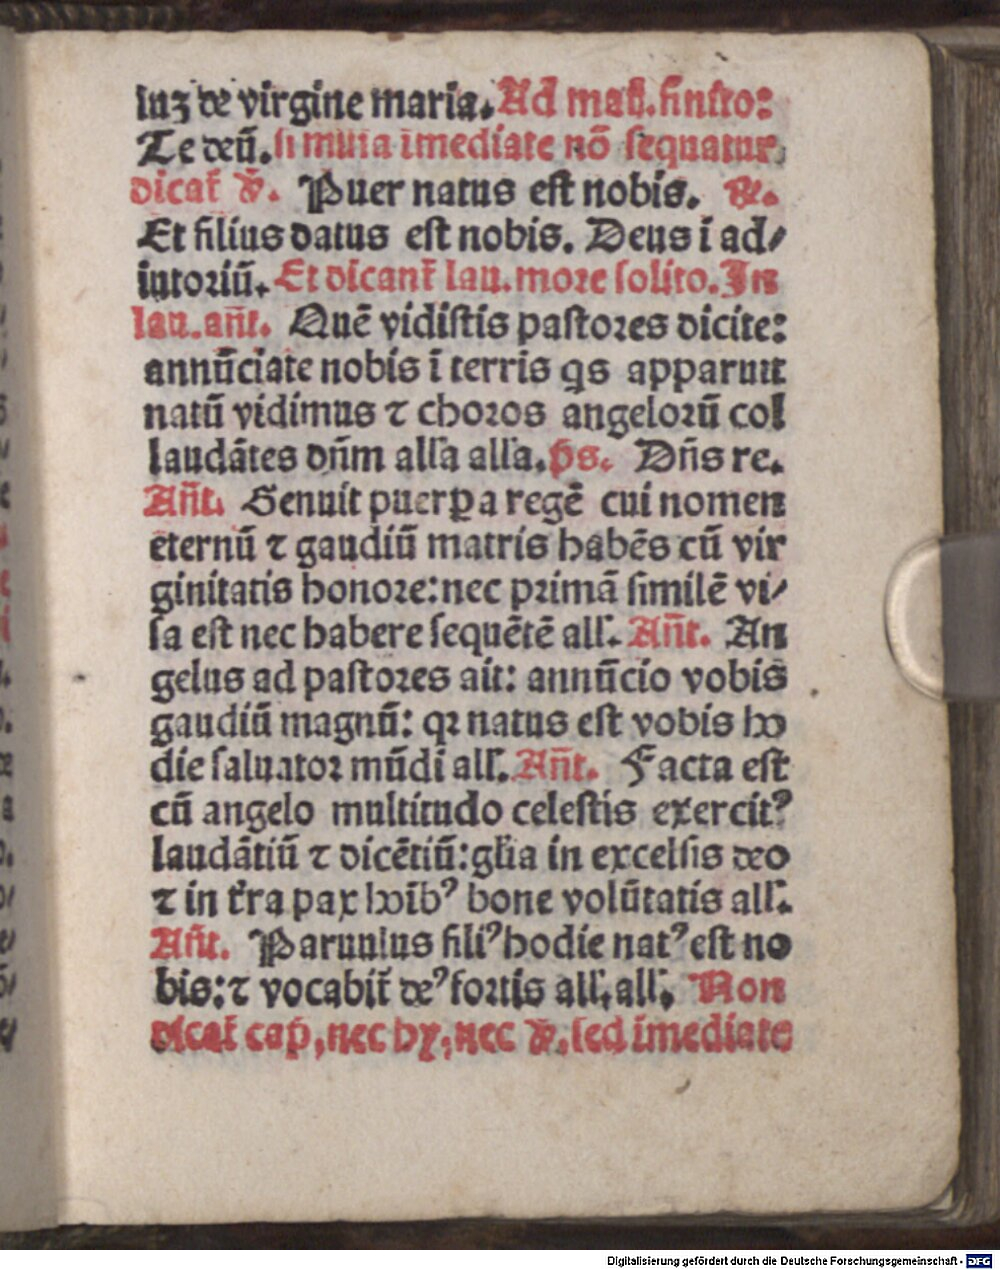 luʒ de virgine maria. Ad mať. finito:
Te deū. si missa īmediate nō sequatur
dicať ℣. Puer natus est nobis. ℟.
Et filius datus est nobis. Deus ī ad/
iutoriū. Et dicanť lau. more solito. In
lau. an̄t. Quē vidistis pastores dicite:
annūciate nobis ī terris qs apparuit
natū vidimus ⁊ choros angelorū col
laudātes dn̄m alľa alľa. p̄s. Dn̄s re.
An̄t. Genuit puerꝑa regē cui nomen
eternū ⁊ gaudiū matris habēs cū vir
ginitatis honore: nec primā similē vi/
sa est nec habere sequētē alľ. An̄t. An
gelus ad pastores ait: annūcio vobis
gaudiū magnū: qꝛ natus est vobis ho
die saluator mūdi alľ. An̄t. Facta est
cū angelo multitudo celestis exercitꝰ
laudātiū ⁊ dicētiū: gľia in excelsis deo
⁊ in ťra pax hoībꝰ bone volūtatis alľ.
An̄t. Paruulus filiꝰ hodie natꝰ est no
bis: ⁊ vocabiť deꝰ fortis alľ. alľ. Non
dicať cap̄, nec hy, nec ℣. sed īmediate
Digitalisierung gefördert durch die Deutsche Forschungsgemeinschaft - DFG